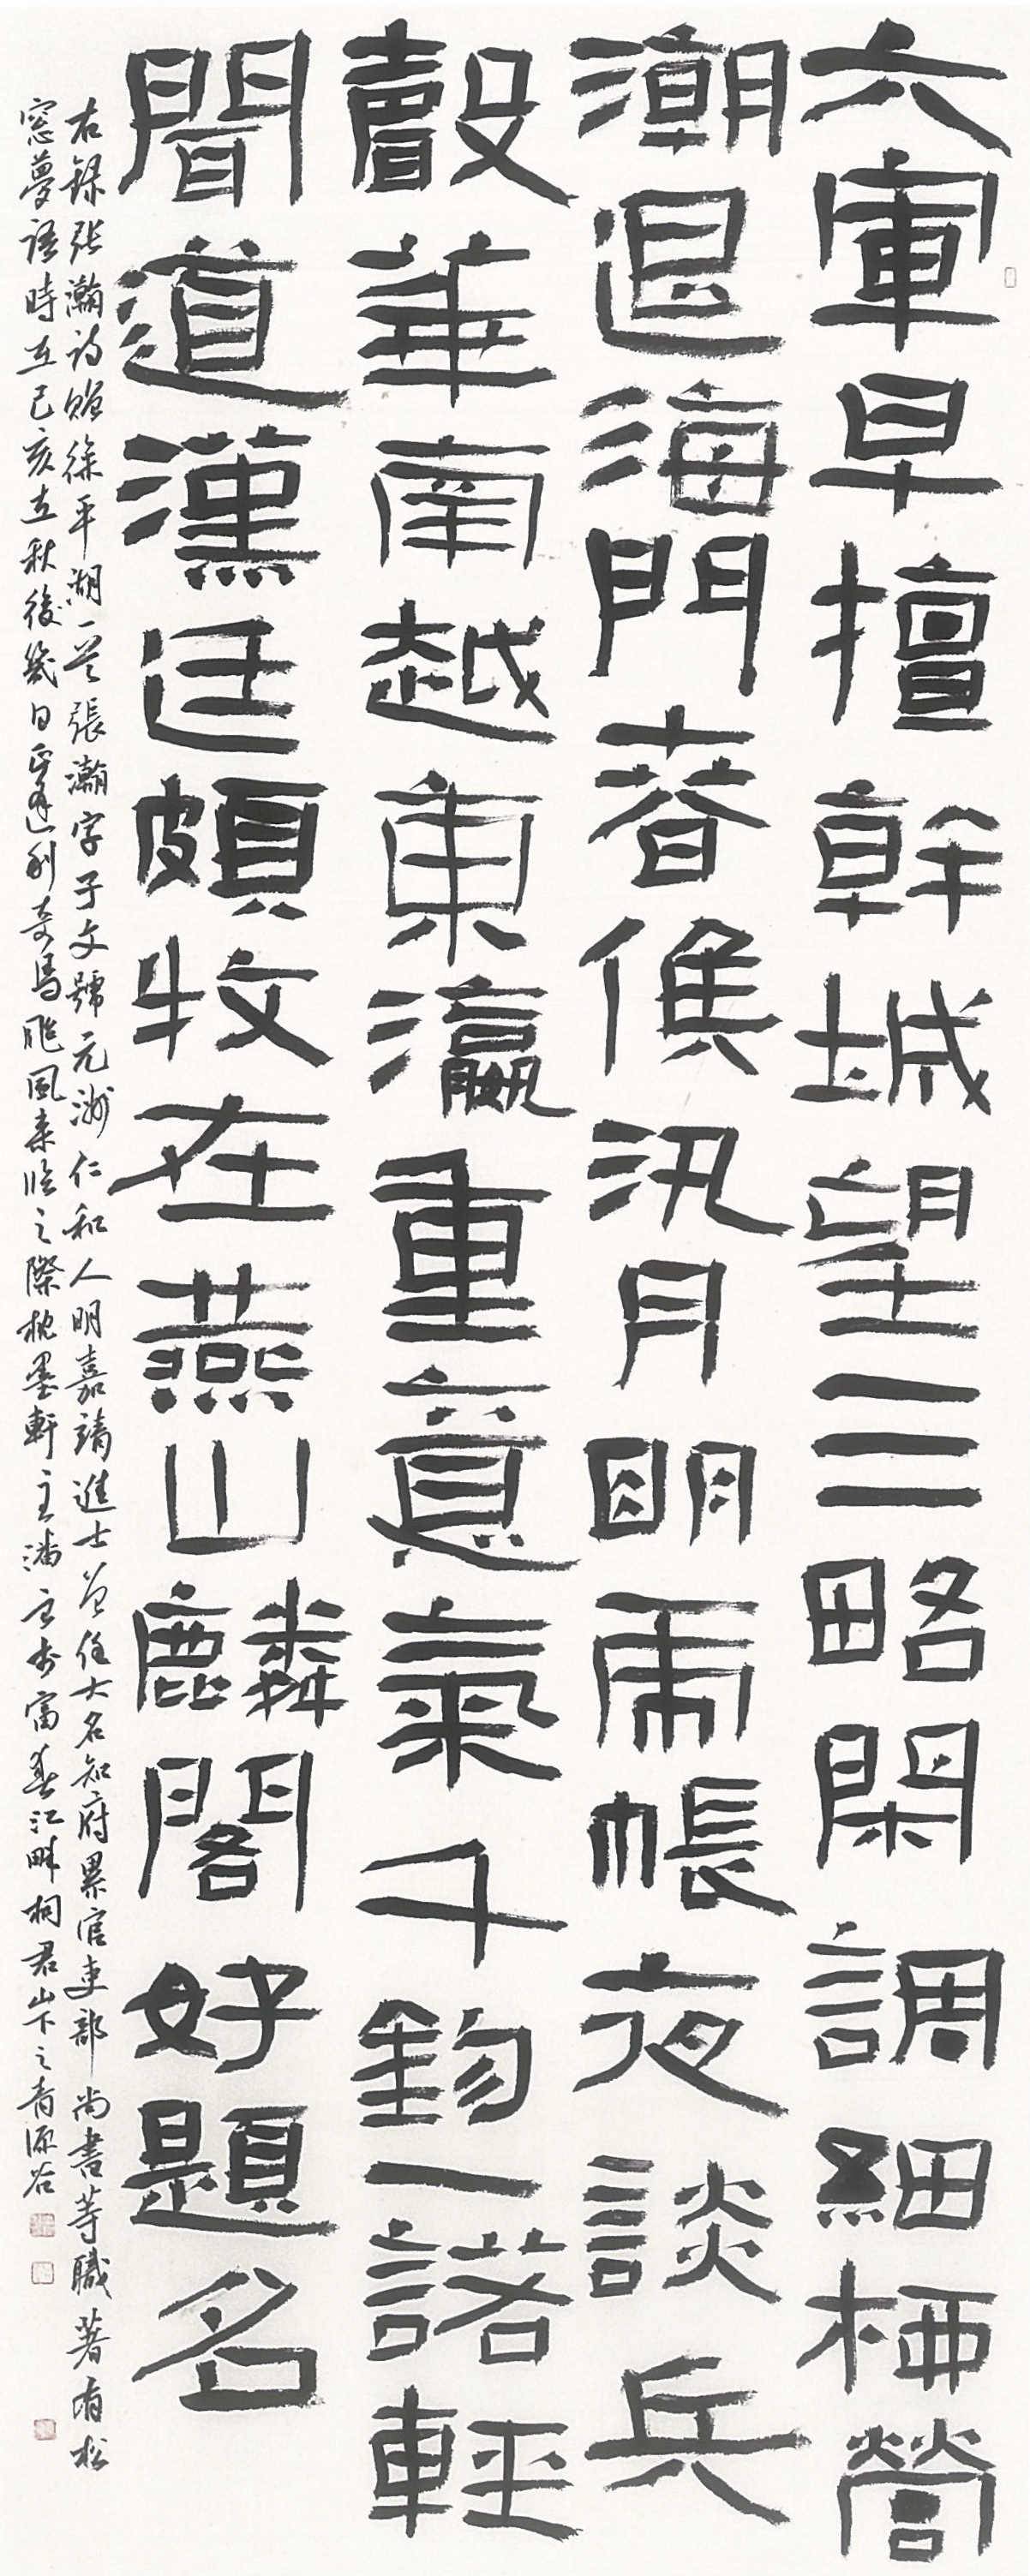 六軍早擅幹城望三略閑調細柳營
潮退海門春候汛月明虎帳夜談兵
聲華南越東瀛重意氣千鈞一諾輕
聞道漢廷頗牧在燕山麟閣好題名
右録張瀚詩贈徐平湖一首張瀚字子文號元洲仁和人明嘉靖進士曾任大名知府累官吏部尚書等職著有松
窓夢語時在己亥立秋後幾日正逢利奇馬颱風来臨之際枕墨軒主潘書富春江畔桐君山下之青源谷